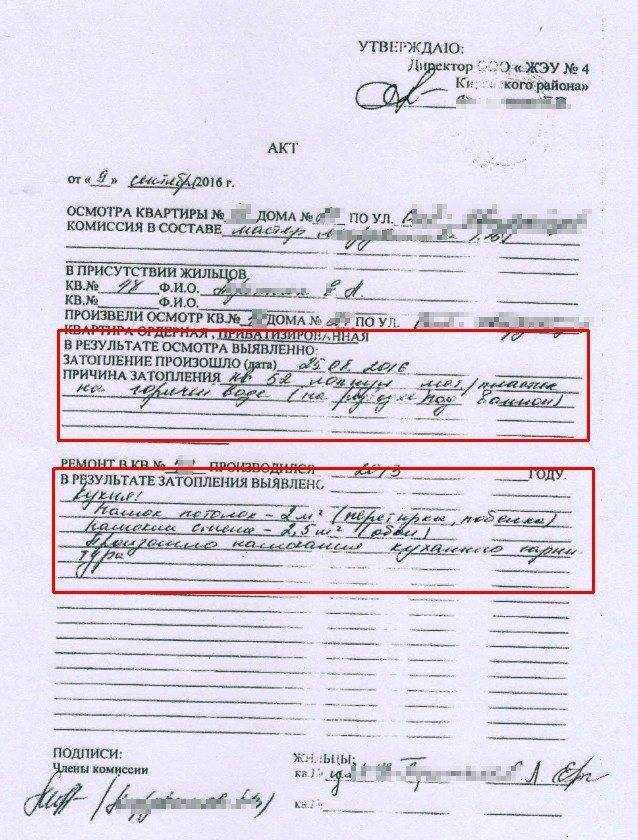 УТВЕРЖДАЮ:
Директор ООО « ЖЭУ № 4
района»
АКТ
от « 9 » сентября 2016 г.
ОСМОТРА КВАРТИРЫ № ДОМА № ПО УЛ.
КОМИССИЯ В СОСТАВЕ мастер
В ПРИСУТСТВИИ ЖИЛЬЦОВ
КВ.№ 48 Ф.И.О.
КВ.№ Ф.И.О.
ПРОИЗВЕЛИ ОСМОТР КВ.№ ДОМА № ПО УЛ.
КВАРТИРА ОРДЕРНАЯ , ПРИВАТИЗИРОВАННАЯ
В РЕЗУЛЬТАТЕ ОСМОТРА ВЫЯВЛЕННО:
ЗАТОПЛЕНИЕ ПРОИЗОШЛО (дата) 25.08.2016
ПРИЧИНА ЗАТОПЛЕНИЯ кв 52 лопнул мет/пластик
на горячей воде (на под ванной)
РЕМОНТ В КВ № ПРОИЗВОДИЛСЯ 2013 ГОДУ.
В РЕЗУЛЬТАТЕ ЗАТОПЛЕНИЯ ВЫЯВЛЕНО
Кухня:
Намок потолок - 2 м² (перетирка, побелка)
Намокли стена - 2,5 м² (обои)
Произошло намокание кухонного гарни
тура
ПОДПИСИ:
Члены комиссии
ЖИЛЬЦЫ:
кв.№
кв.№